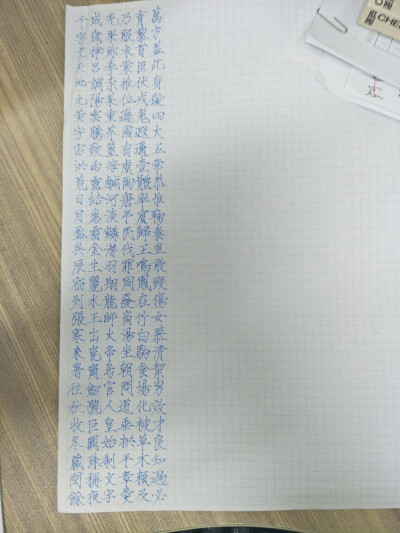 千字文天地元黃宇宙洪荒日月盈昃辰宿列張寒來暑往秋收冬藏閏餘
成歲律呂調陽雲騰致雨露結為霜金生麗水玉出崑岡劍號巨闕珠稱夜
光果珍李柰菜重芥薑海鹹河淡鱗潛羽翔龍師火帝鳥官人皇始制文字
乃服衣裳推位遜國有虞陶唐弔民伐罪周發商湯坐朝問道垂拱平章愛
育黎首臣伏戎羌遐邇壹體率賓歸王鳴鳳在竹白駒食場化被草木賴及
萬方蓋此身髮四大五常恭惟鞠養豈敢毀傷女慕貞絜男效才良知過必